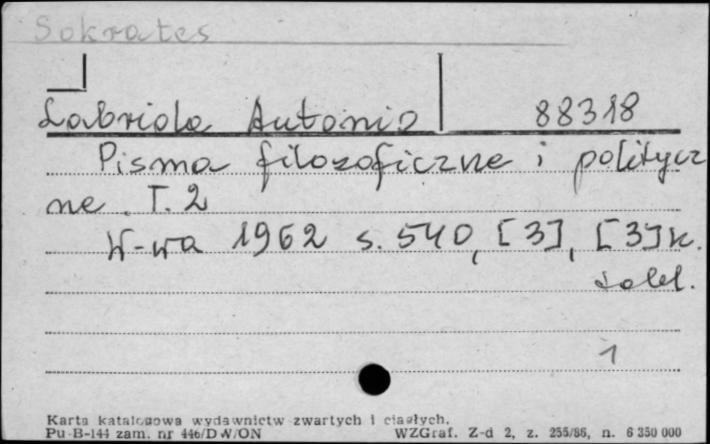 Sokrates
Labriola Antonio 88318
Pisma filozoficzne i politycz
ne. T. 2
W-wa 1962 s. 540, [3], [3] k.
tabl.
1
Karta katalogowa wydawnictw zwartych i ciągłych.
Pu-B-144 zam. nr 446/DW/ON WZGraf. Z-d 2, z. 255/86, n. 6 350 000